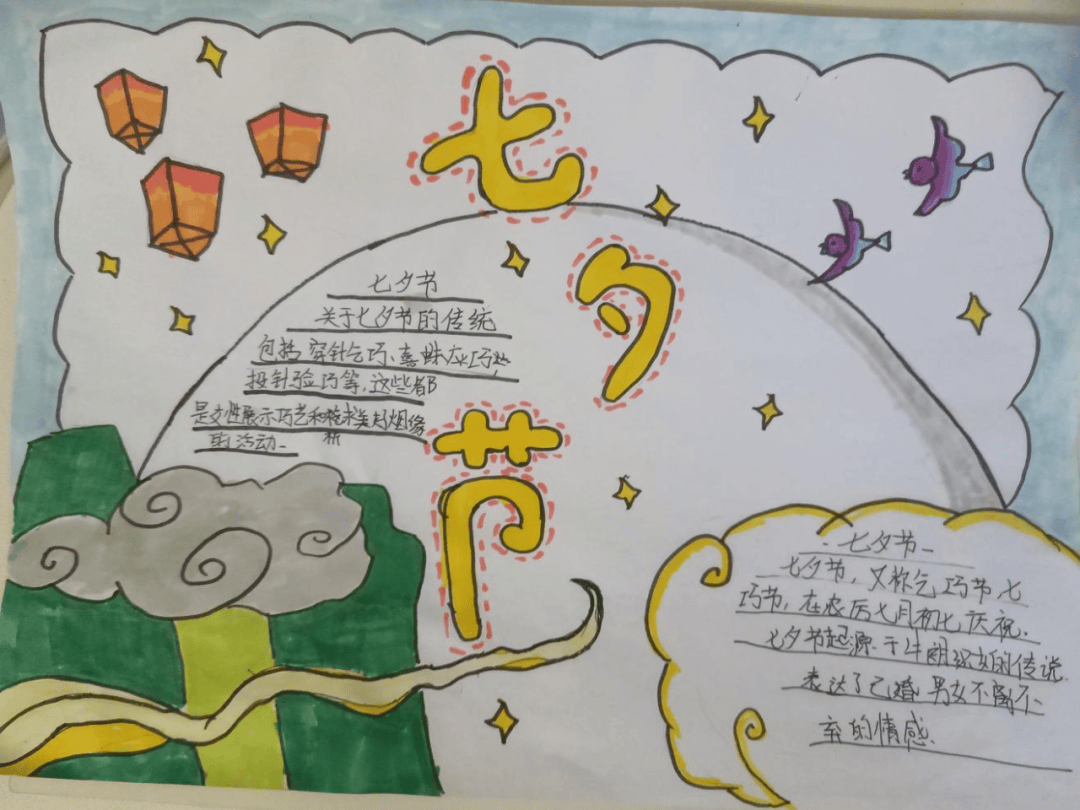 七夕节
七夕节
关于七夕节的传统
包括穿针乞巧、喜蛛应巧些,
投针验巧等,这些都
是女性展示巧艺和祈求美好姻缘
的活动
七夕节
七夕节,又称乞巧节七
巧节,在农历七月初七庆祝.
七夕节起源于牛郎织女的传说
表达了已婚男女不离不
弃的情感.